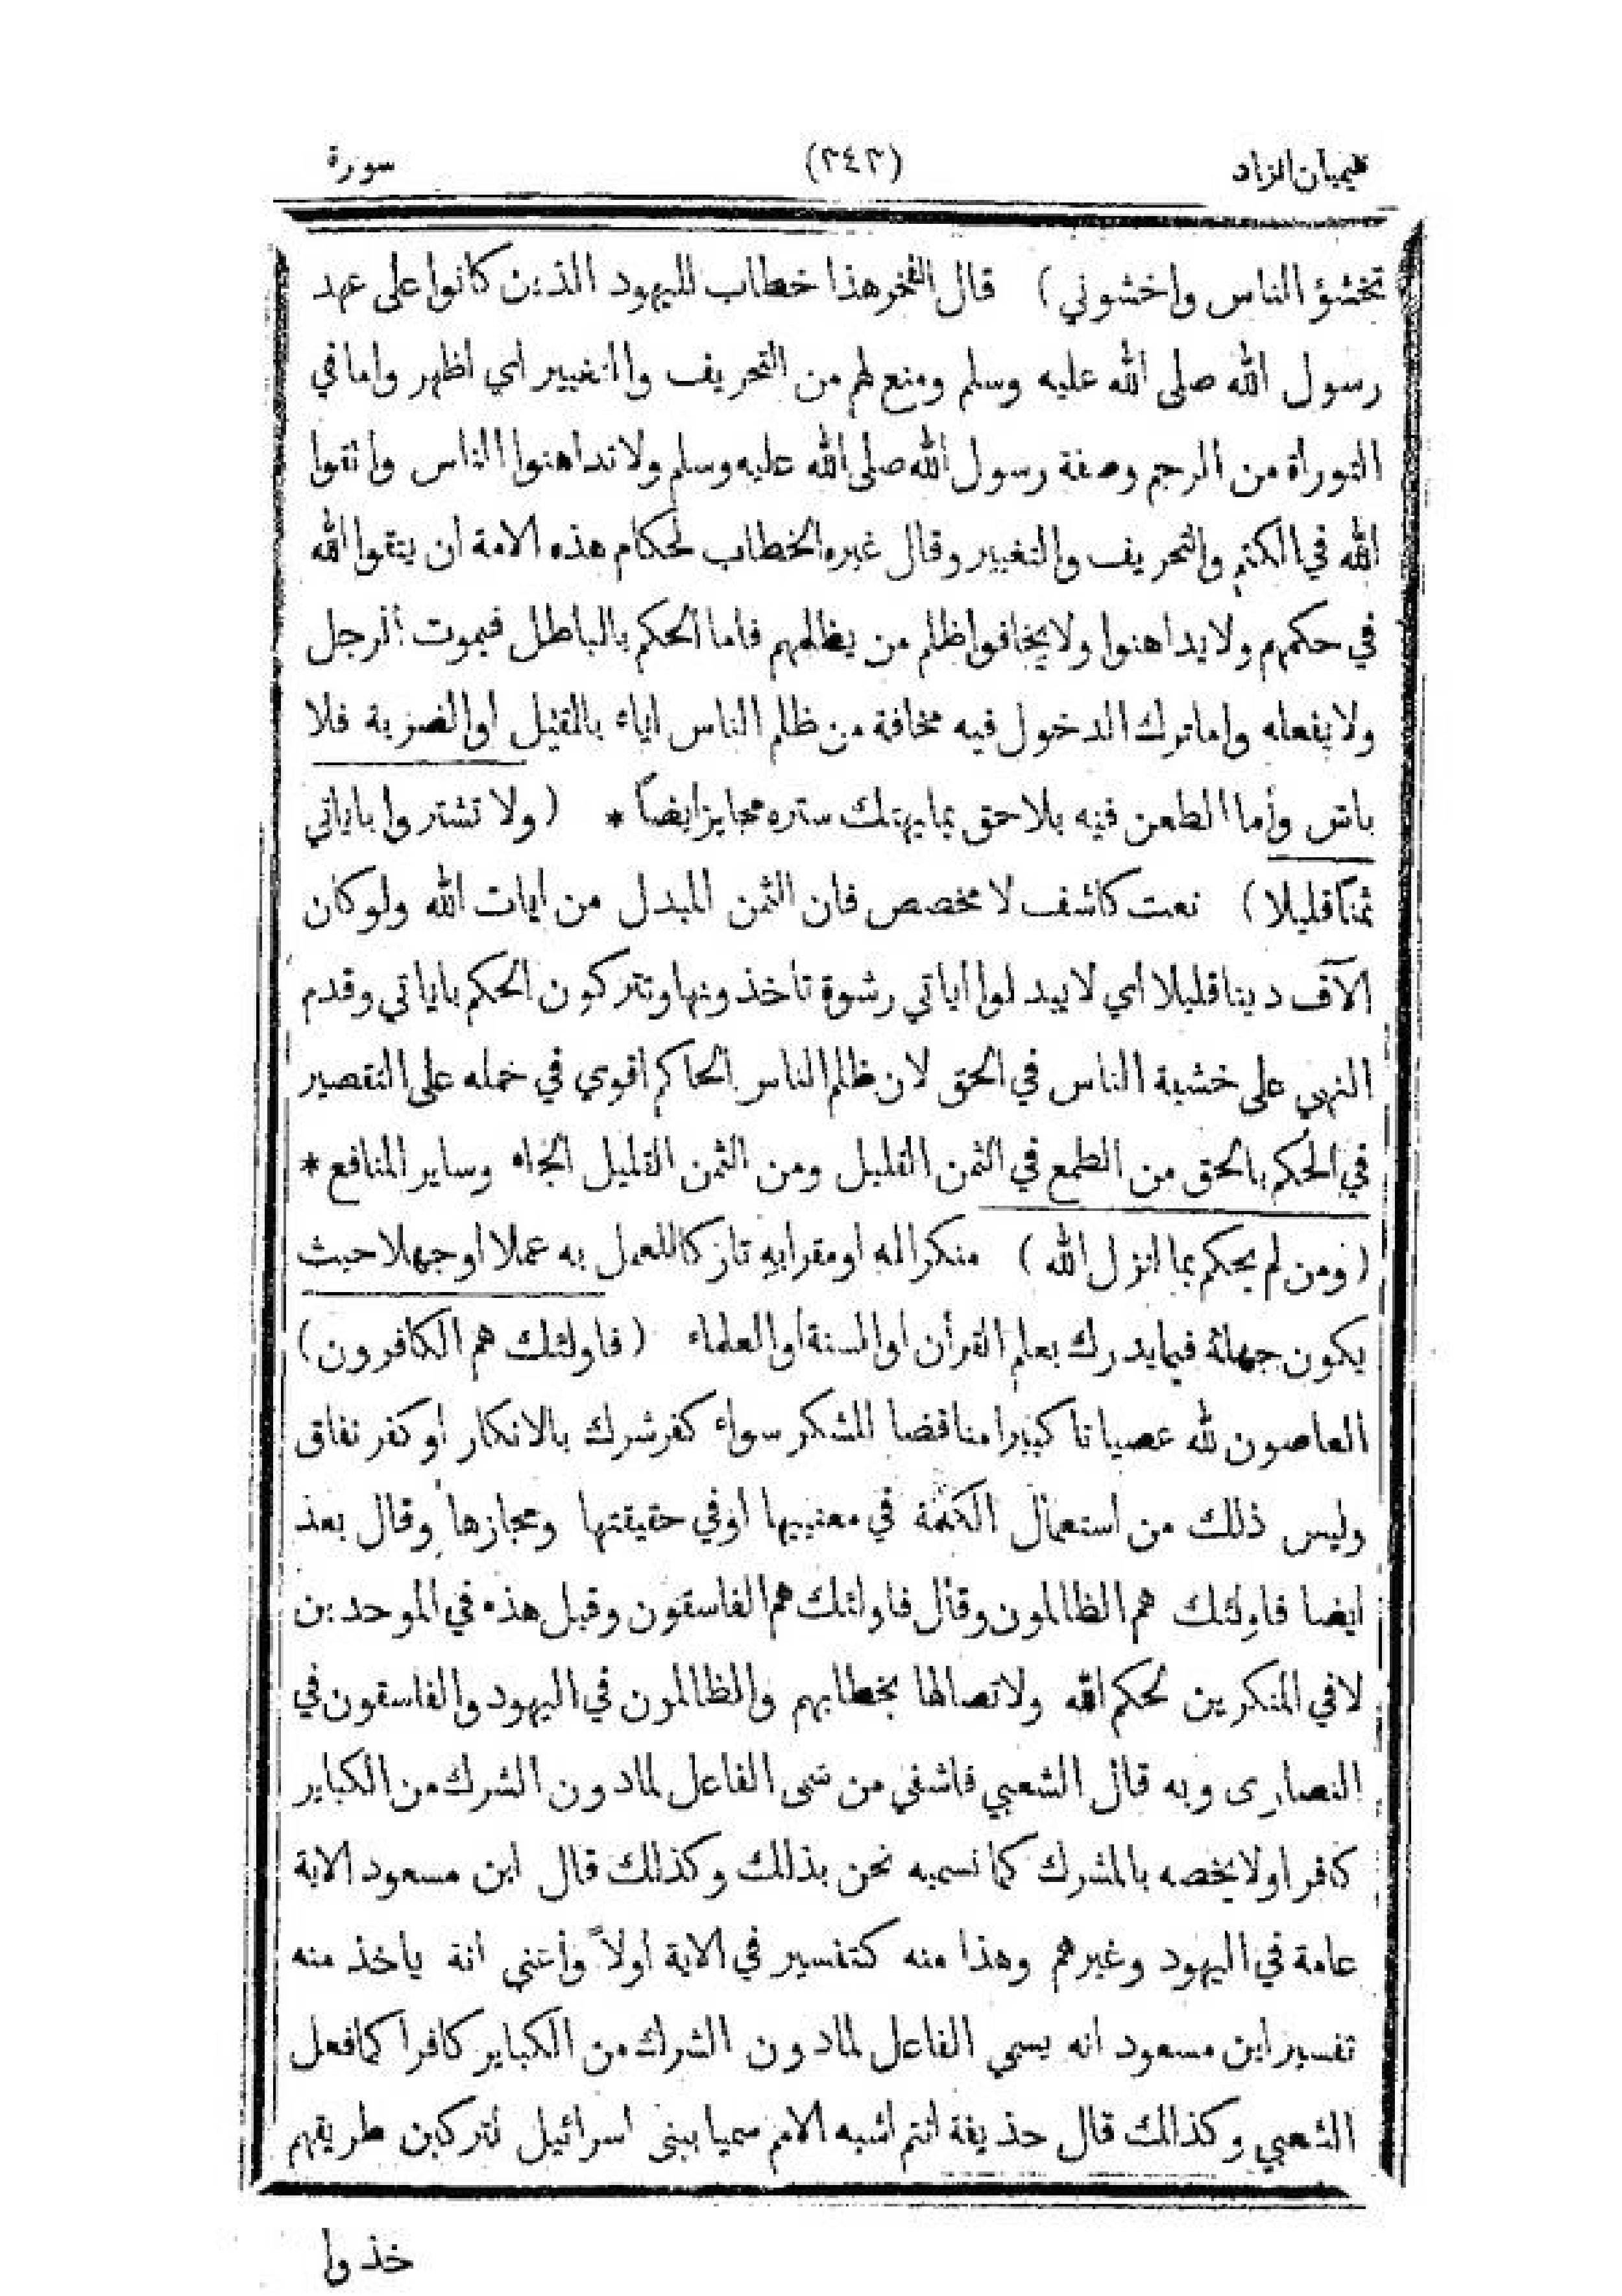 هيميان الزاد (٣٤٢) سورة
تخشؤ الناس واخشوني) قال الفخر هذا خطاب لليهود الذين كانوا على عهد
رسول الله صلى الله عليه وسلم ومنع لهم من التحريف والتغيير اي اظهر واما في
التوراة من الرجم وصفة رسول الله صلى الله عليه وسلم ولا تداهنوا الناس واتقوا
الله في الكتم والتحريف والتغيير وقال غيره الخطاب لحكام هذه الامة ان يتقوا الله
في حكمهم ولا يداهنوا ولا يخافوا ظلم من يظلمهم فاما الحكم بالباطل فيموت الرجل
ولا يفعله واما ترك الدخول فيه مخافة من ظلم الناس اياه بالقتيل او الضربة فلا
باس وأما الطعن فيه بلا حق بما يهتك ستره مجايز ايضاً * (ولا تشتروا باياتي
ثمنا قليلا) نعت كاشف لا مخصص فان الثمن المبدل من ايات الله ولو كان
الآف دينا قليلا اي لا يبدلوا اياتي رشوة تأخذونها وتتركون الحكم باياتي وقدم
النهي على خشية الناس في الحق لان ظلم الناس الحاكم اقوي في حمله على التقصير
في الحكم بالحق من الطمع في الثمن القليل ومن الثمن القليل الجاه وساير المنافع *
(ومن لم يحكم بما انزل الله) منكرا له او مقرا به تاركا للعمل به عملا او جهلا حيث
يكون جهله فيما يدرك بعلم القرأن او السنة او العلماء (فاولئك هم الكافرون)
العاصون لله عصيانا كبيرا مناقضا للشكر سواء كفر شرك بالانكار او كفر نفاق
وليس ذلك من استعمال الكلمة في معنييها او في حقيقتها ومجازها وقال بعد
ايضا فاولئك هم الظالمون وقال فاولئك هم الفاسقون وقيل هذه في الموحدين
لا في المنكرين لحكم الله ولاتصالها بخطابهم والظالمون في اليهود والفاسقون في
النصارى وبه قال الشعبي فاشفي من سمى الفاعل لما دون الشرك من الكباير
كافرا ولا يخصه بالمشرك كما نسميه نحن بذلك وكذلك قال ابن مسعود الاية
عامة في اليهود وغيرهم وهذا منه كتفسير في الاية اولاً وأعني انة ياخذ منه
تفسير ابن مسعود انه يسمي الفاعل لما دون الشرك من الكباير كافرا كما فعل
الشعبي وكذالك قال حذيفة انتم اشبه الامم سميا ببنى اسرائيل لتركبن طريقهم
خذوا